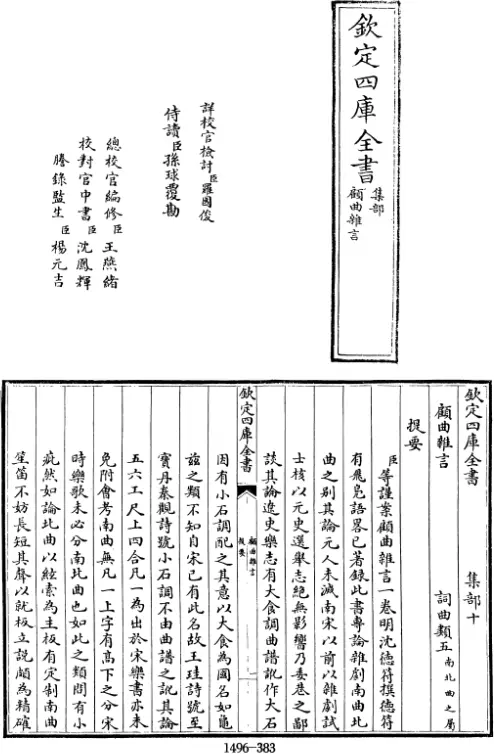 欽定四庫全書
集部
顧曲雜言
詳校官檢討臣羅國俊
侍讀臣孫球覆勘
總校官編修臣王燕緒
校對官中書臣沈鳳輝
謄錄監生臣楊元吉
欽定四庫全書 集部十
顧曲雜言 詞曲類五南北曲之屬
提要
臣等謹案顧曲雜言一卷明沈德符撰德符
有飛鳬語畧已著錄此書專論雜劇南曲北
曲之别其論元人未滅南宋以前以雜劇試
士核以元史選舉志絶無影響乃委巷之鄙
談其論遼史樂志有大食調曲譜訛作大石
欽定四庫全書
顧曲雜言
提要
因有小石調配之其意以大食為國名如龜
兹之類不知自宋已有此名故王珪詩號至
寳丹秦觀詩號小石調不由曲譜之訛其論
五六工尺上四合凡一為出於宋樂書亦未
免附會考南曲無凡一上字有髙下之分宋
時樂歌未必分南北曲也如此之類間有小
疵然如論北曲以絃索為主板有定制南曲
笙笛不妨長短其聲以就板立說頗為精確
1496-383